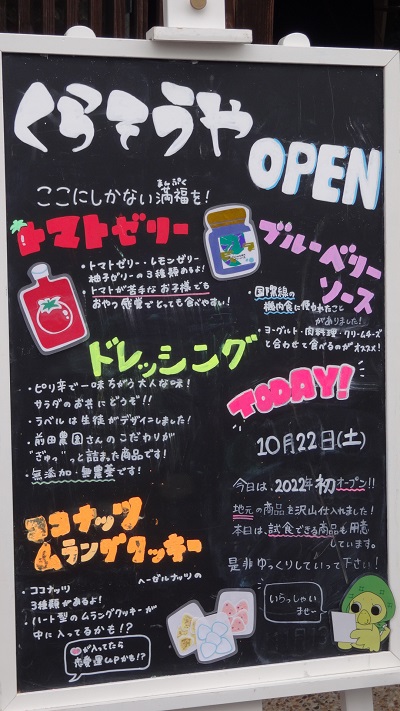 くらそうや
OPEN
ここにしかない満福を!
まんぷく
トマトゼリー
・トマトゼリー・レモンゼリー
柚子ゼリーの3種類あるよ!
・トマトが苦手なお子様でも
おやつ感覚でとっても食べやすい!
ブルーベリー
ソース
・国際線の
機内食に使われたこと
がありました!
・ヨーグルト・肉料理・クリームチーズ
と合わせて食べるのがオススメ!
ドレッシング
・ピリ辛で一味ちがう大人な味!
サラダのお供にどうぞ!!
・ラベルは生徒がデザインしました!
・前田農園さんのこだわりが
"ぎゅっ"っと詰まった商品です!
・無添加・無農薬です!
TODAY!
10月22日(土)
今日は、2022年初オープン!!
地元の商品を沢山仕入れました!
本日は、試食できる商品も用意
しています。
是非ゆっくりしていって下さい!
ココナッツ
ムラングクッキー
・ココナッツ
ヘーゼルナッツの
3種類があるよ!
・ハート型のムラングクッキーが
中に入ってるかも!?
が入ってたら
恋愛運UPかも!?
いらっしゃい
ませ〜